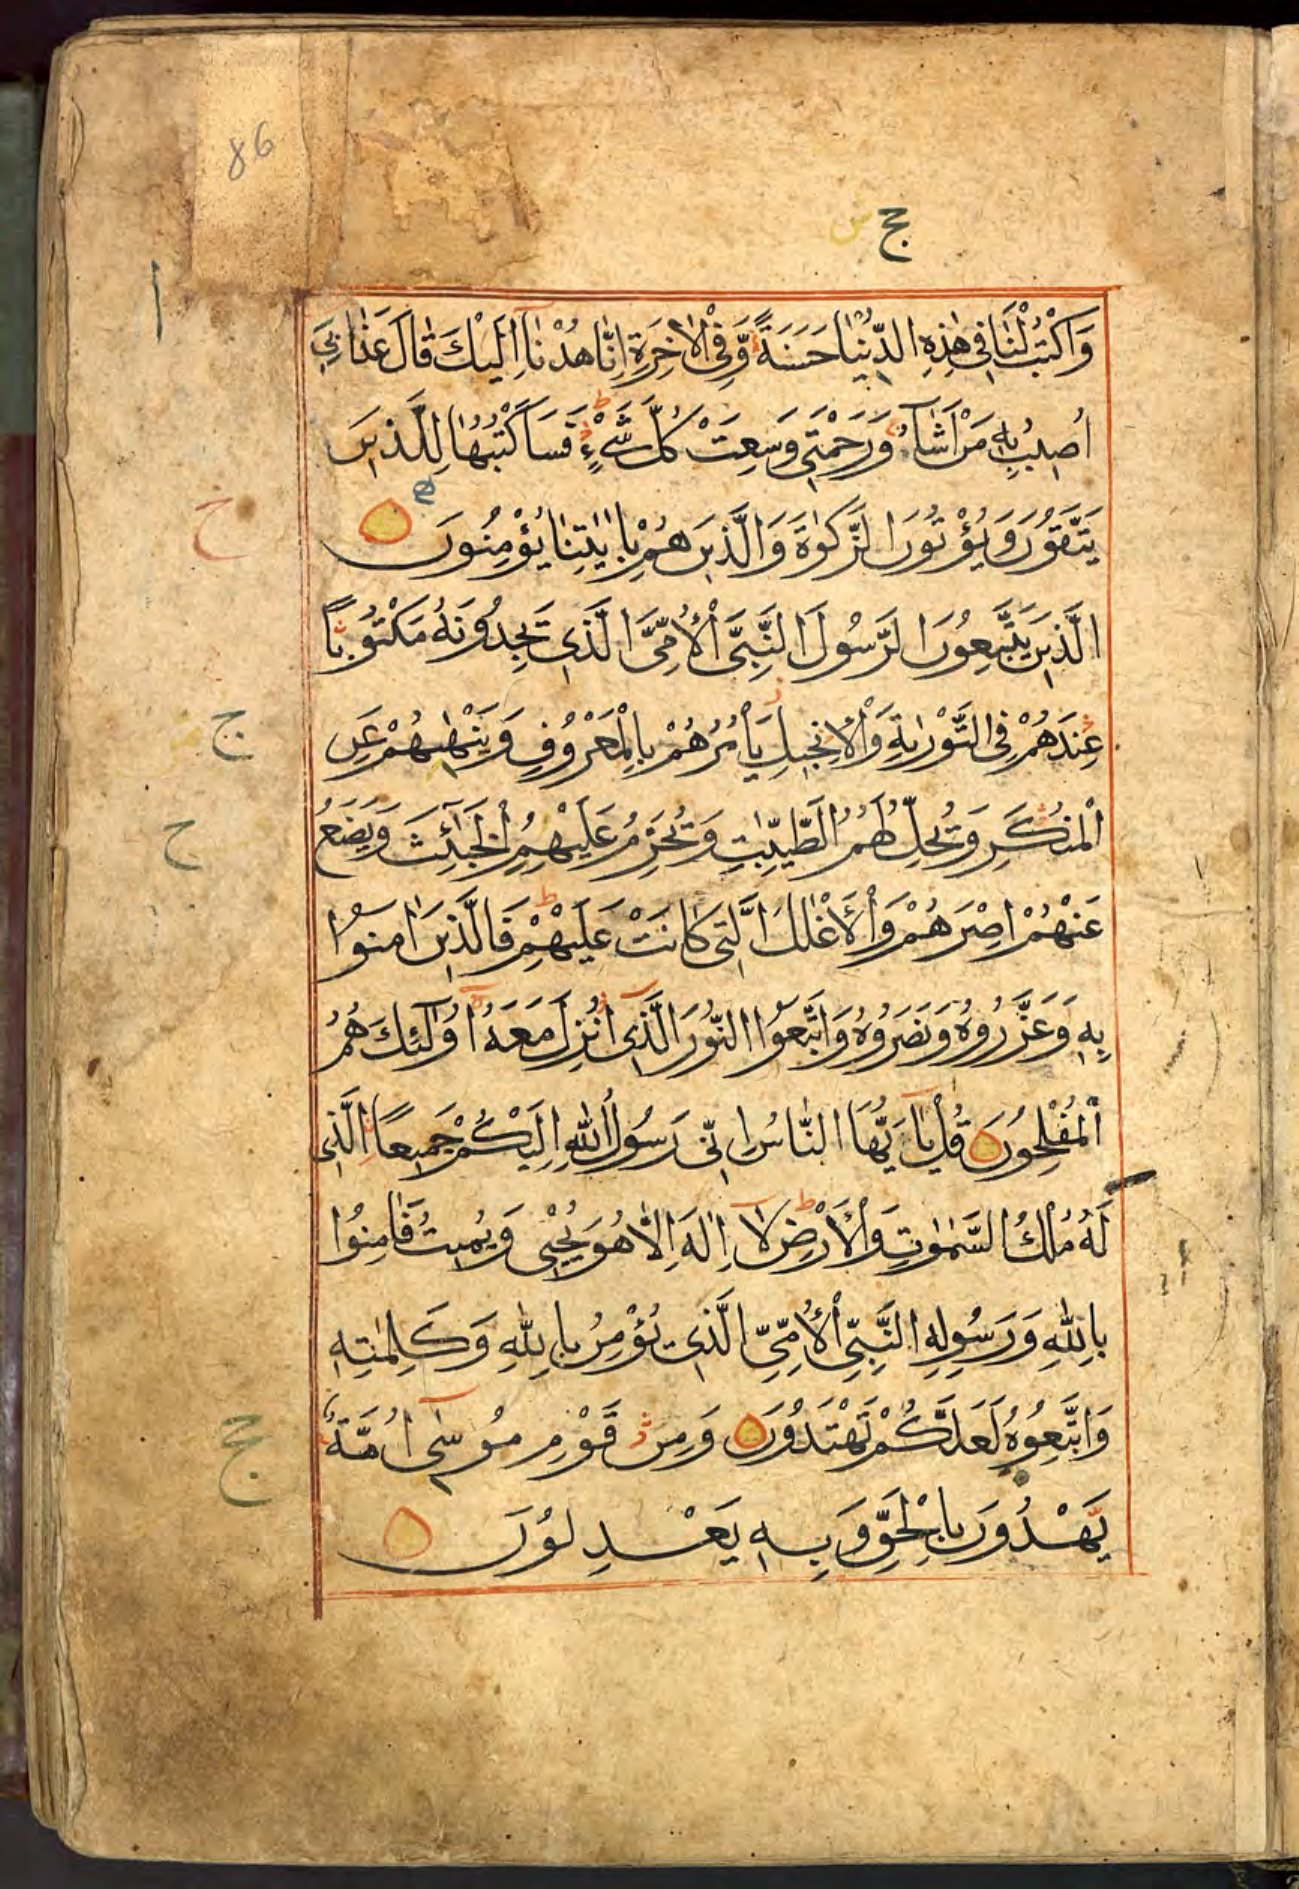 86
ج ش
وَاكْتُبْ لَنَا فِي هٰذِهِ الدُّنْيَا حَسَنَةً وَّفِي الْاٰخِرَةِ اِنَّا هُدْنَآ اِلَيْكَ قَالَ عَذَابِيٓ
اُصِيْبُ بِهٖ مَنْ اَشَآءُ وَرَحْمَتِيْ وَسِعَتْ كُلَّ شَيْءٍ فَسَاَكْتُبُهَا لِلَّذِيْنَ
يَتَّقُوْنَ وَيُؤْتُوْنَ الزَّكٰوةَ وَالَّذِيْنَ هُمْ بِاٰيٰتِنَا يُؤْمِنُوْنَ
الَّذِيْنَ يَتَّبِعُوْنَ الرَّسُوْلَ النَّبِيَّ الْاُمِّيَّ الَّذِيْ يَجِدُوْنَهٗ مَكْتُوْبًا
عِنْدَهُمْ فِي التَّوْرٰىةِ وَالْاِنْجِيْلِ يَاْمُرُهُمْ بِالْمَعْرُوْفِ وَيَنْهٰىهُمْ عَنِ
الْمُنْكَرِ وَيُحِلُّ لَهُمُ الطَّيِّبٰتِ وَيُحَرِّمُ عَلَيْهِمُ الْخَبٰٓئِثَ وَيَضَعُ
عَنْهُمْ اِصْرَهُمْ وَالْاَغْلٰلَ الَّتِيْ كَانَتْ عَلَيْهِمْ فَالَّذِيْنَ اٰمَنُوْا
بِهٖ وَعَزَّرُوْهُ وَنَصَرُوْهُ وَاتَّبَعُوا النُّوْرَ الَّذِيْٓ اُنْزِلَ مَعَهٗٓ اُولٰٓئِكَ هُمُ
الْمُفْلِحُوْنَ قُلْ يٰٓاَيُّهَا النَّاسُ اِنِّيْ رَسُوْلُ اللّٰهِ اِلَيْكُمْ جَمِيْعًا الَّذِيْ
لَهٗ مُلْكُ السَّمٰوٰتِ وَالْاَرْضِ لَآ اِلٰهَ اِلَّا هُوَ يُحْيٖ وَيُمِيْتُ فَاٰمِنُوْا
بِاللّٰهِ وَرَسُوْلِهِ النَّبِيِّ الْاُمِّيِّ الَّذِيْ يُؤْمِنُ بِاللّٰهِ وَكَلِمٰتِهٖ
وَاتَّبِعُوْهُ لَعَلَّكُمْ تَهْتَدُوْنَ وَمِنْ قَوْمِ مُوْسٰٓى اُمَّةٌ
يَّهْدُوْنَ بِالْحَقِّ وَبِهٖ يَعْدِلُوْنَ